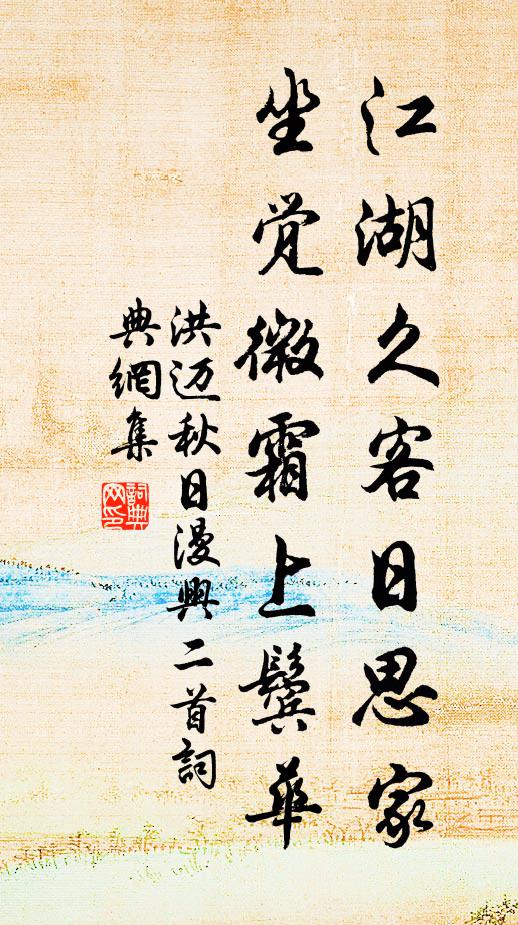 江湖久客日思家
坐觉微霜上鬓华
洪迈秋日漫興二首詞
典網集
詞典
网印